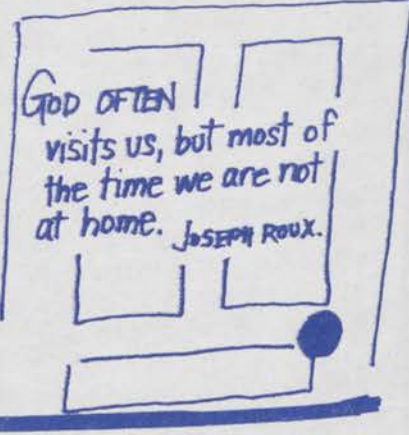 GOD OFTEN
visits us, but most of
the time we are not
at home. JOSEPH ROUX.